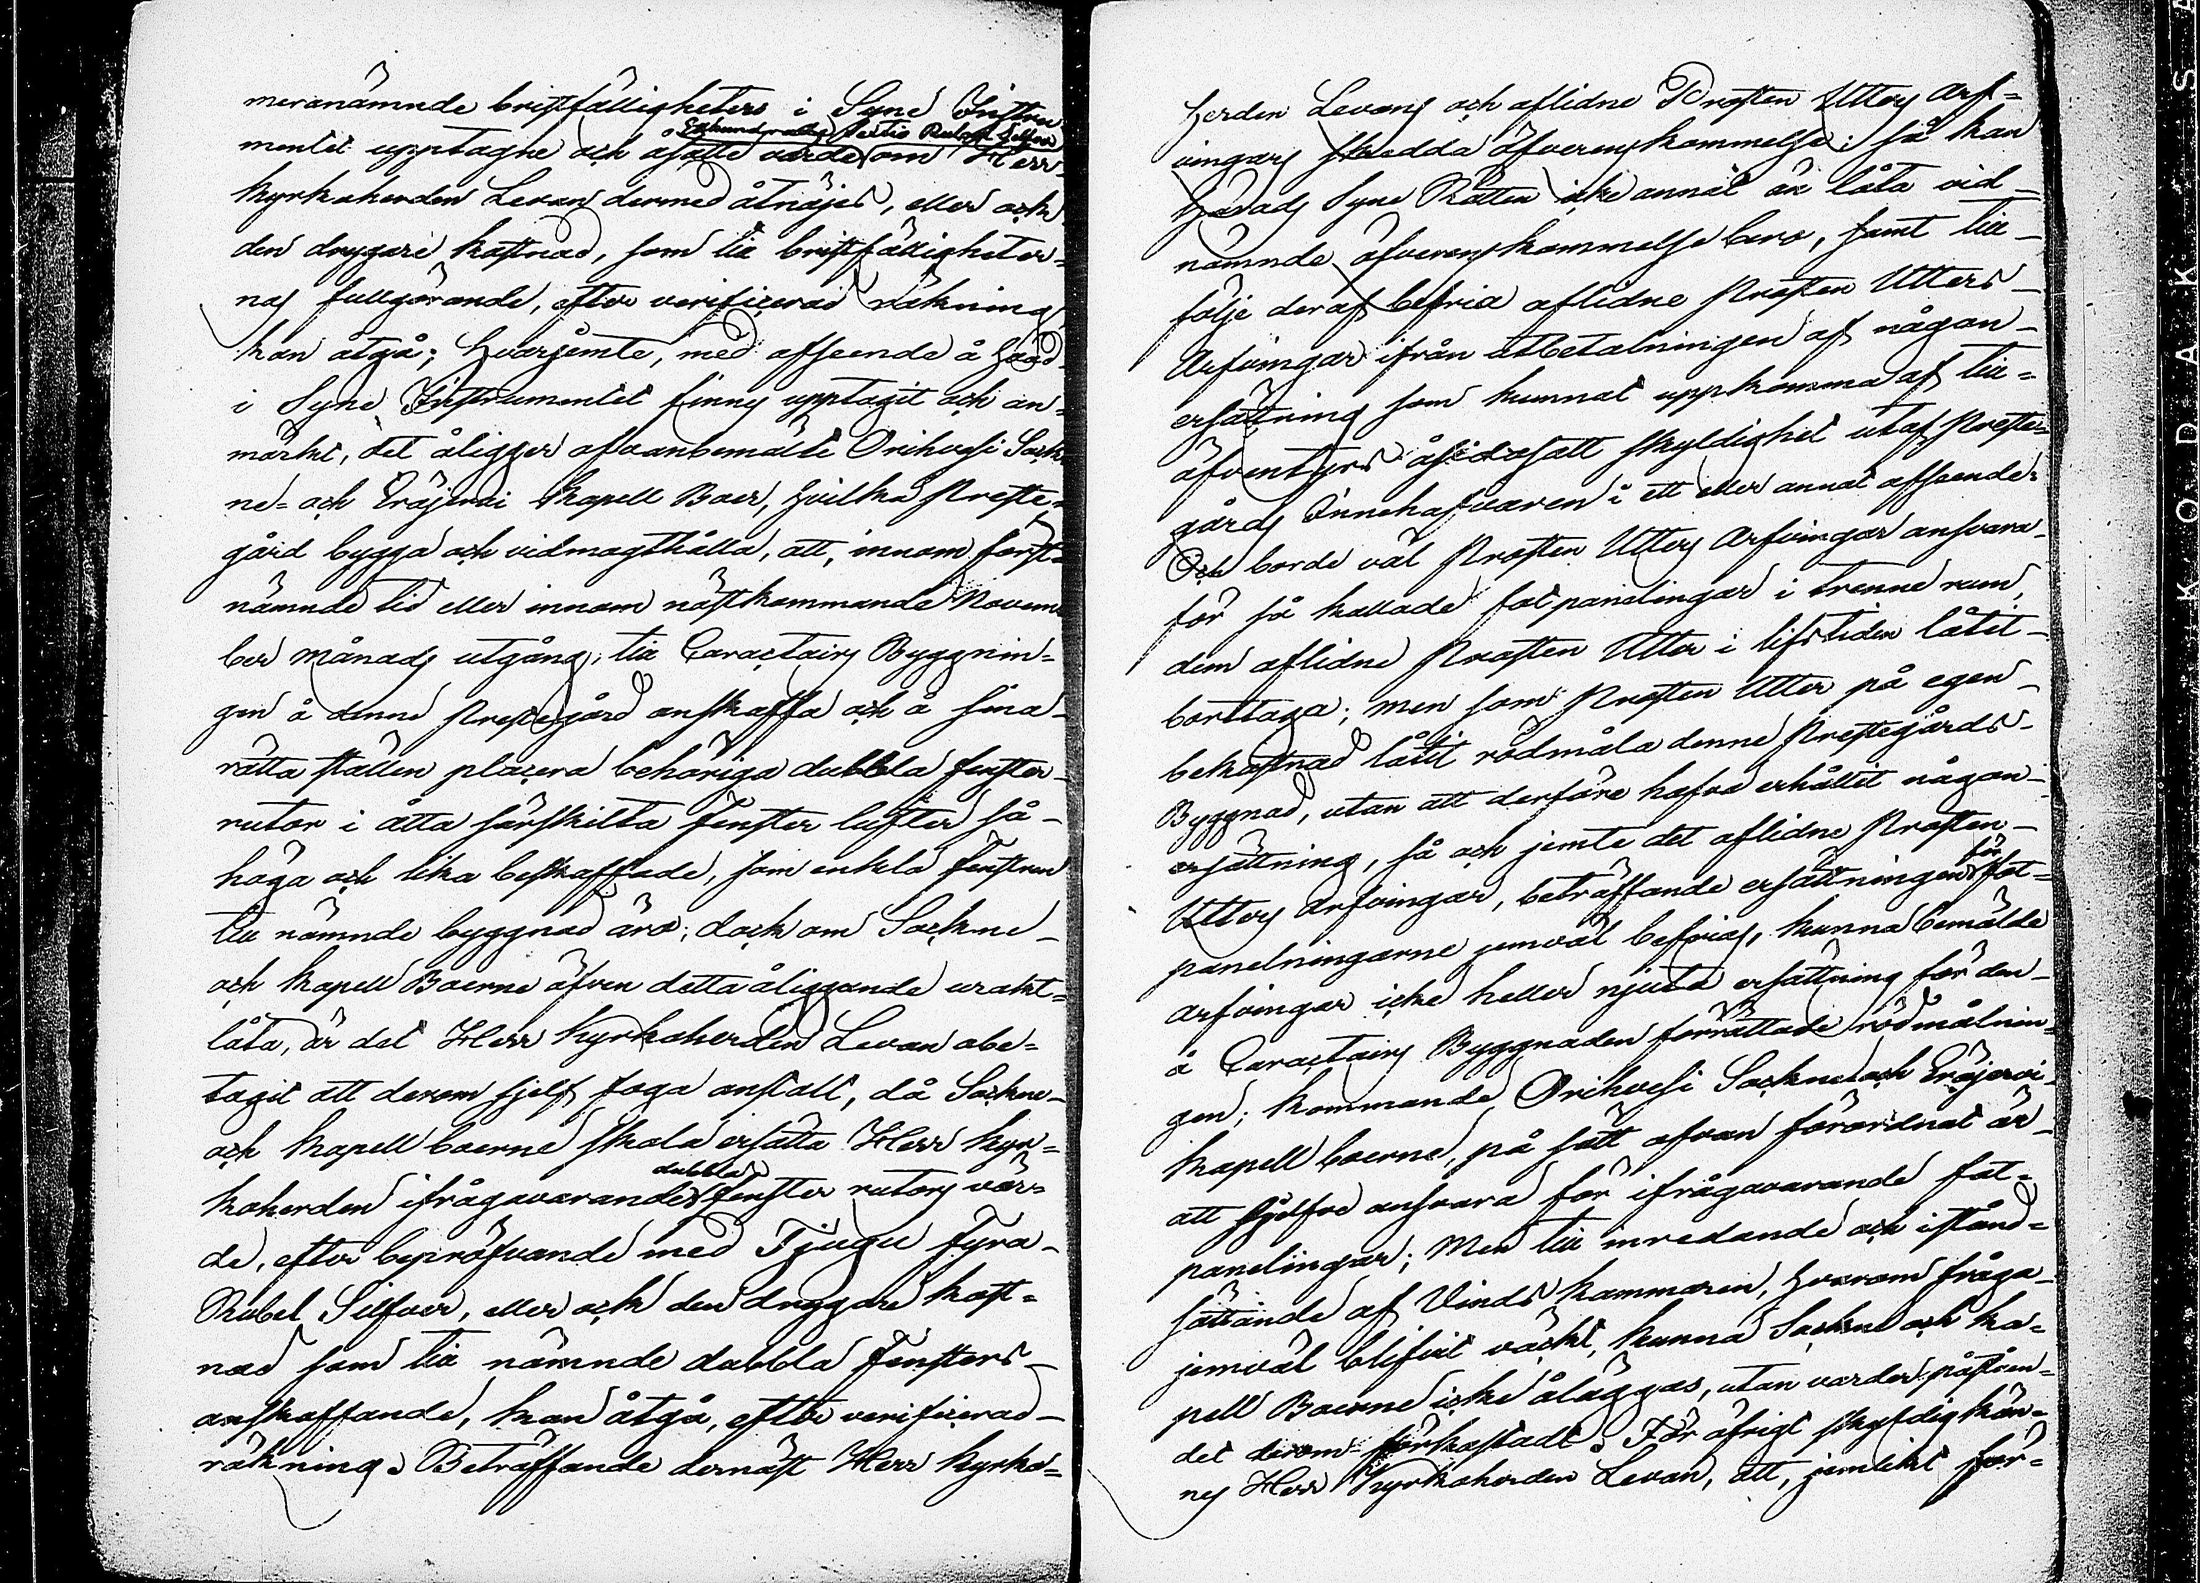 meranämnde bristfälligheters i Syne Instru-
Etthundrade Sextio Rubel Silfver
mentet upptagne och åsatte värde om Herr
Kyrkoherden Levan dermed åtnöjes, eller ock
den drygare kostnad, som till bristfälligheter-
nas fullgörande, efter verificerad räkning,
kan åtgå; hvarjemte, med afseende å hvad
i Syne Instrumentet finnes upptagit och an-
märkt, det åligger ofvanbemälte Orihvesi Sock-
ne- och Eräjervi Kapell Boer, hvilka Preste-
gård bygga och vidmagthålla, att, innom först-
nämnde tid eller innom nästkommande Novem-
ber månads utgång, till Caractairs Byggnin-
gen å denne Prestegård anskaffa och å sina
rätta ställen placera behöriga dubbla fenster-
rutor i åtta särskilta fenster lufter så
höga och lika beskaffade, som enkla fenstren
till nämnde byggnad äro; dock om Sockne
och Kapell Boerne äfven detta åliggande urakt-
låta, är det Herr Kyrkoherden Levan obe-
tagit att derom sjelf foga anstalt, då Sockne-
och Kapell boerne skola ersätta Herr Kyr-
dubbla
koherden ifrågavarande fenster rutors vär-
de, efter bepröfvande med Tjugu fyra
Rubel Silfver, eller ock den dryggare kost-
nad som till nämnde dubbla fensters
anskaffande, kan åtgå, efter verificerad
räkning. Beträffande dernäst Herr Kyrko-
herden Levans och aflidne Prosten Utters Arf-
vingars skedda öfverenskommelse; så kan
Härads Syne Rätten icke annat än låta vid
nämnde öfverenskommelse bero, samt till
följe deraf befria aflidne Prosten Utters
Arfvingar ifrån utbetalningen af någon
ersättning som kunnat uppkomma af till-
äfventyrs åsidosatt skyldighet utaf Preste-
gårds Innehafvaren i ett eller annat afseende:
Och borde väl Prosten Utters Arfvingar ansvara
för så kallade fotpanelingar i trenne rum,
dem aflidne Prosten Utter i lifstiden låtit
borttaga; men som Prosten Utter på egen
bekostnad låtit rödmåla denne Prestegårds
Byggnad, utan att derföre hafva erhållit någon
ersättning, så och jemte det aflidne Prosten
för
Utters Arfvingar, beträffande ersättningen fot-
panelningarne jemväl befrias, kunna bemälde
Arfvingar icke heller njuta ersättning för den
å Caractairs Byggnaden förrättade rödmålnin-
gen; kommande Orihvesi Sockne och Eräjervi
Kapell boerne, på sätt ofvan förordnat är
att sjelfve ansvara för ifrågavarande fot-
panelingar; Men till inredande och istånd-
sättande af Vinds kammaren, hvarom fråga
jemväl blifvit väckt, kunna Sockne och Ka-
pell Boerne icke åläggas, utan varder påståen-
det derom förkastadt. För öfrigt skyldig kän-
nes Herr Kyrkoherden Levan, att, jemlikt för-